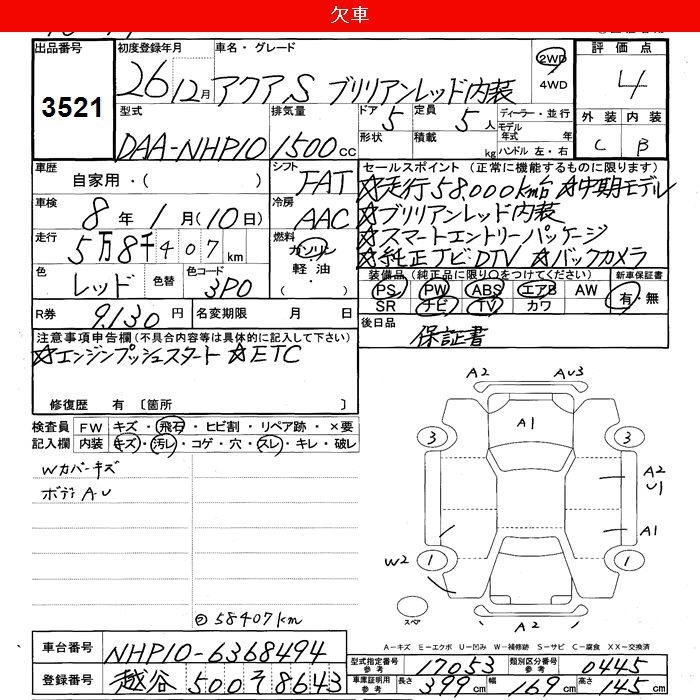 欠車
出品番号 初度登録年月 車名・グレード 評価点
3521 26年12月 アクア S ブリリアンレッド内装 2WD 4WD 4
型式 排気量 ドア 5 定員 5人 ディーラー・並行 外装 内装
DAA-NHP10 1500cc 形状 積載 kg モデル年式 年 ハンドル 左・右 C B
車歴 シフト セールスポイント(正常に機能するものに限ります)
自家用・( ) FAT ☆走行58,000km台 ☆中期モデル
車検 冷房 ☆ブリリアンレッド内装
8年1月(10日) AAC ☆スマートエントリーパッケージ
走行 5万8千407km 燃料 ガソリン 軽油・( ) ☆純正ナビDTV ☆バックカメラ
色 色替 色コード 装備品(純正品に限り○をつけてください) 新車保証書
レッド 3P0 PS PW ABS エアB AW 有・無
SR ナビ TV カワ
R券 9,130円 名変期限 月 日 後日品
保証書
注意事項申告欄(不具合内容等は具体的に記入して下さい)
☆エンジンプッシュスタート ☆ETC
修復歴 有〔箇所 〕
検査員記入欄 FW キズ・飛石・ヒビ割・リペア跡・×要
内装 キズ・汚レ・コゲ・穴・スレ・キレ・破レ
Wカバーキズ
ボディAU
A2 AU3
A1
3 3
A2
U1
A1
W2 1 1
スペア
A2
58407km
A-キズ E-エクボ U-凹み W-補修跡 S-サビ C-腐食 XX-交換済
車台番号 NHP10-6368494 型式指定番号 参考 17053 類別区分番号 参考 0445
登録番号 越谷 500 そ 8643 車庫証明用 参考 長さ 399cm 幅 169cm 高さ 145cm